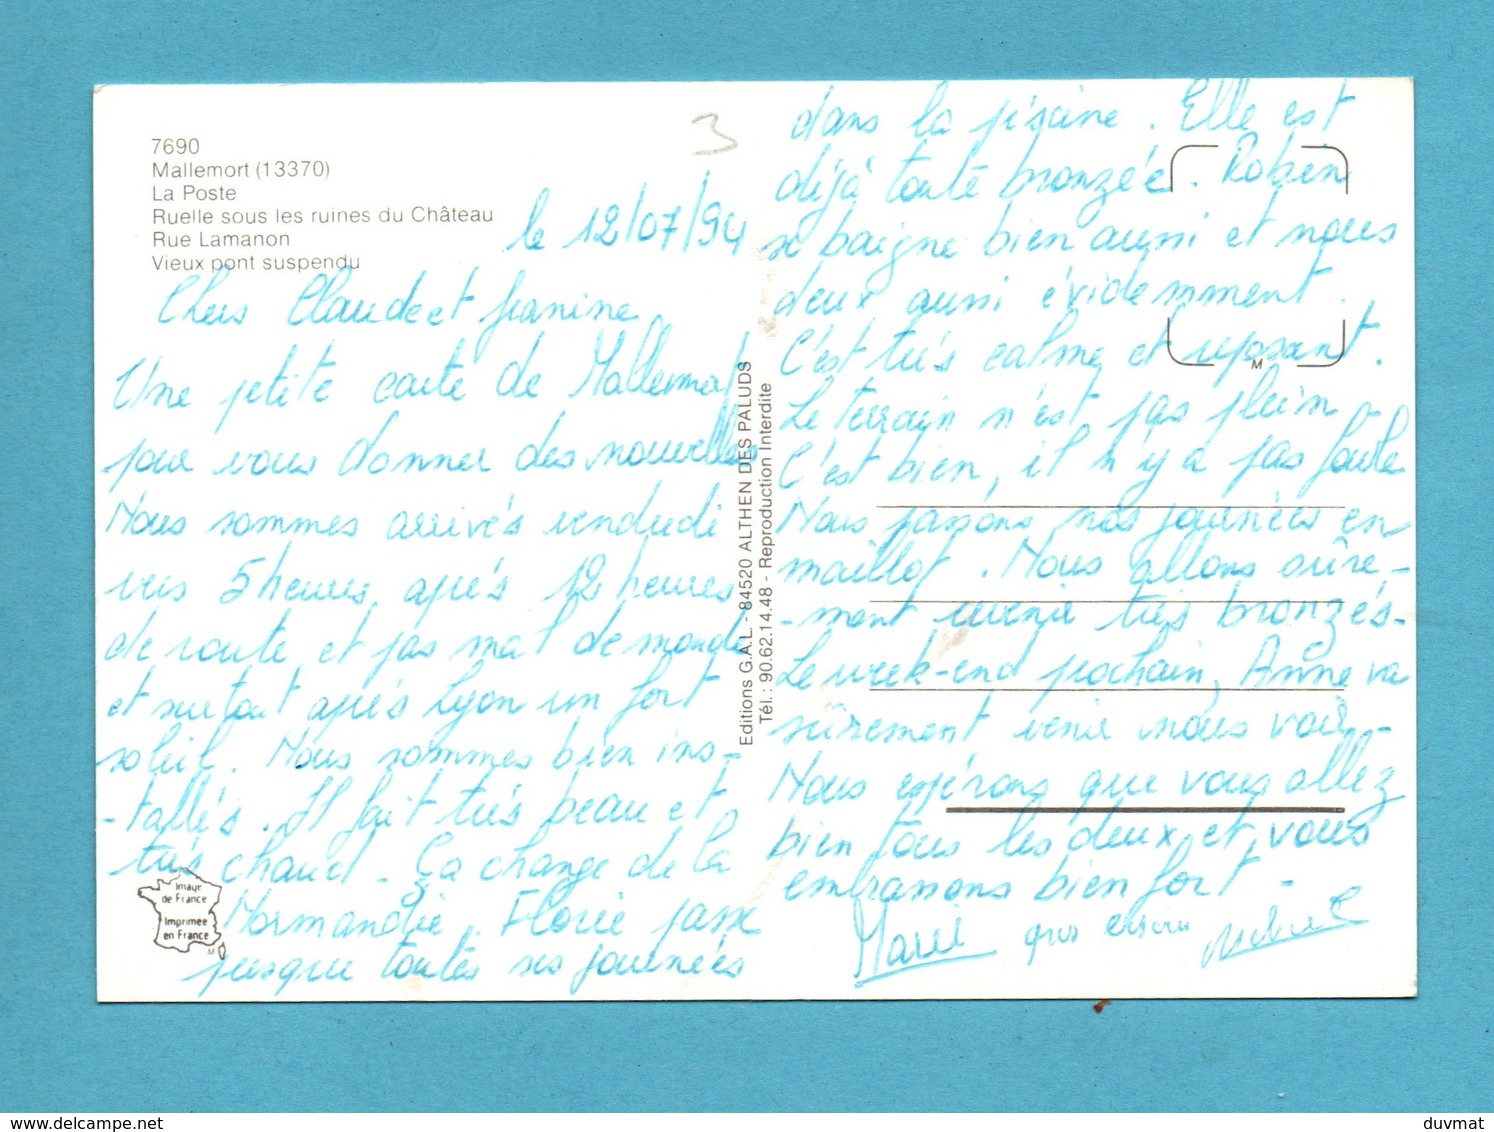 7690
Mallemort (13370)
La Poste
Ruelle sous les ruines du Château
Rue Lamanon
Vieux pont suspendu
3
le 12/07/94
Chers Claude et Jeanine
Une petite carte de Mallemort
pour vous donner des nouvelles
Nous sommes arrivés vendredi
vers 5 heures, après 12 heures
de route et pas mal de monde
et surtout après Lyon un fort
soleil. Nous sommes bien ins-
-tallés. Il fait très beau et
très chaud - Ça change de la
Normandie. Florie passe
presque toutes ses journées
Image
de France
Imprimée
en France
M
Editions G.A.L. - 84520 ALTHEN DES PALUDS
Tél.: 90.62.14.48 - Reproduction Interdite
dans la piscine. Elle est
déjà toute bronzée. Robin
se baigne bien aussi et nous
deux aussi évidemment.
C'est très calme et reposant.
Le terrain n'est pas plein
C'est bien, il n'y a pas foule
Nous passons nos journées en
maillot. Nous allons sûre-
-ment revenir très bronzés-
Le week-end prochain, Anne va
sûrement venir nous voir-
Nous espérons que vous allez
bien tous les deux et vous
embrassons bien fort -
M
gros
duvmat